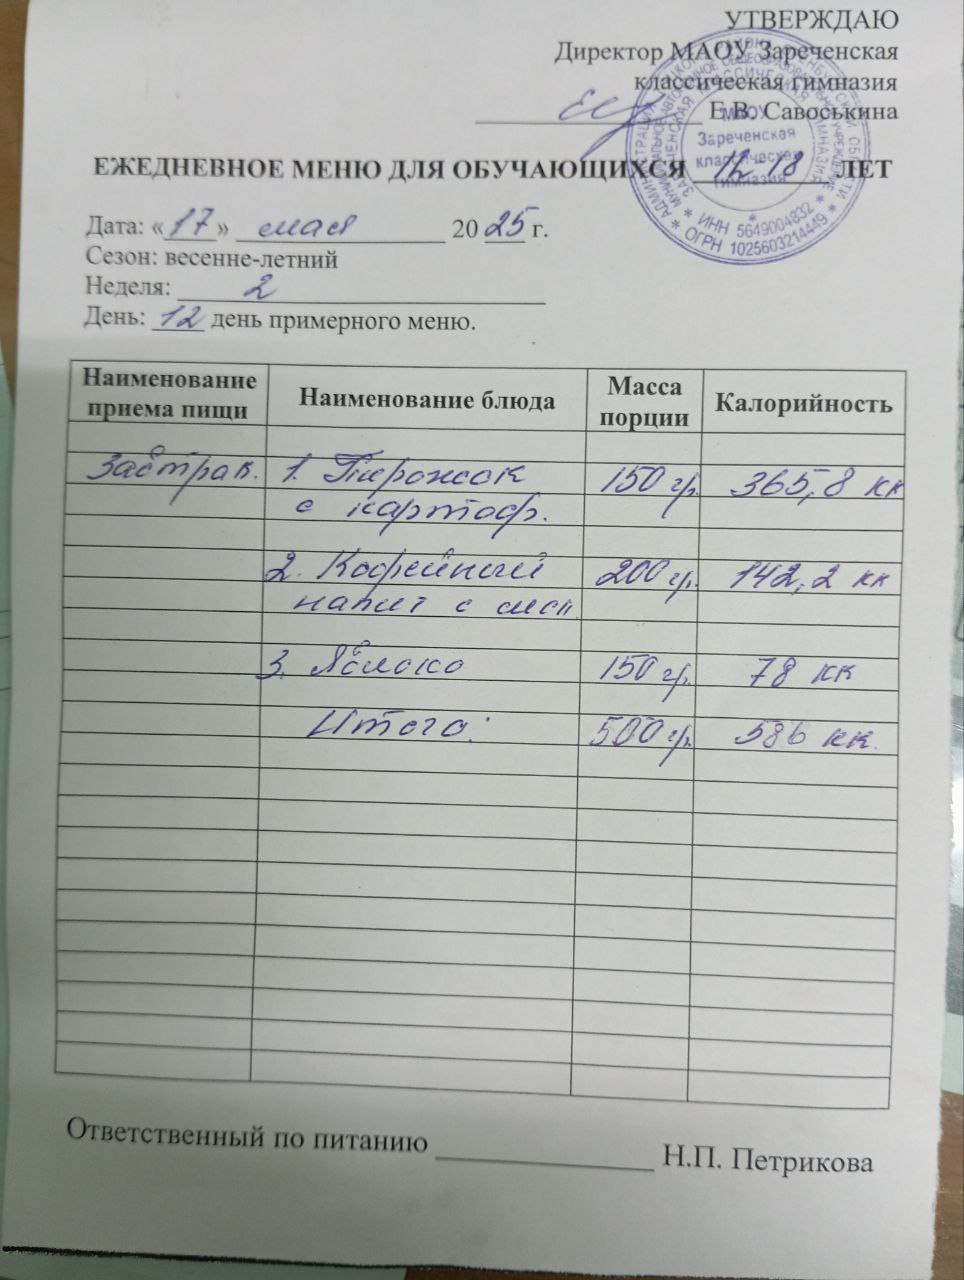 УТВЕРЖДАЮ
Директор МАОУ Зареченская
классическая гимназия
Е.В. Савоськина
МАОУ
Зареченская
классическая
гимназия
ИНН 5649004832
ОГРН 1025603214449
ЕЖЕДНЕВНОЕ МЕНЮ ДЛЯ ОБУЧАЮЩИХСЯ 12-18 ЛЕТ
Дата: «17» мая 2025 г.
Сезон: весенне-летний
Неделя: 2
День: 12 день примерного меню.
Наименование приема пищи Наименование блюда Масса порции Калорийность
Завтрак. 1. Пирожок 150 гр. 365,8 кк
с картоф.
2. Кофейный 200 гр. 142,2 кк
напит с мол
3. Яблоко 150 гр. 78 кк
Итого: 500 гр. 586 кк.
Ответственный по питанию Н.П. Петрикова